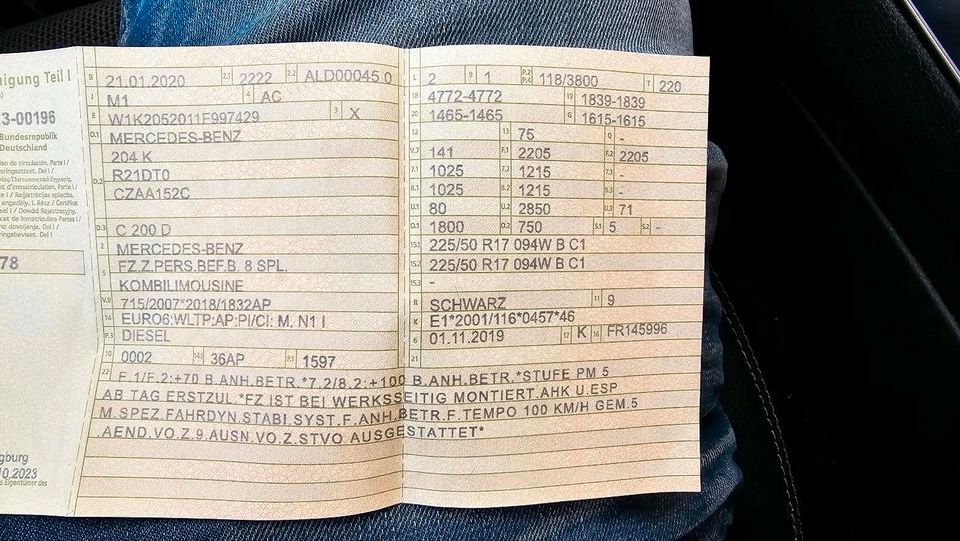 nigung Teil I
3-00196
Bundesrepublik
Deutschland
78
gburg
10.2023
s Eigentümer des
B 21.01.2020 2.1 2222 2.2 ALD00045 0
J M1 4 AC
E W1K2052011F997429 3 X
D.1 MERCEDES-BENZ
204 K
D.2 R21DT0
CZAA152C
D.3 C 200 D
2 MERCEDES-BENZ
5 FZ.Z.PERS.BEF.B. 8 SPL.
KOMBILIMOUSINE
V.9 715/2007*2018/1832AP
14 EURO6;WLTP;AP;PI/CI; M, N1 I
P.3 DIESEL
10 0002 14.1 36AP P.1 1597
L 2 9 1 P.2 P.4 118/3800 T 220
18 4772-4772 19 1839-1839
20 1465-1465 G 1615-1615
12 13 75 Q -
V.7 141 F.1 2205 F.2 2205
7.1 1025 7.2 1215 7.3 -
8.1 1025 8.2 1215 8.3 -
U.1 80 U.2 2850 U.3 71
O.1 1800 O.2 750 S.1 5 S.2 -
15.1 225/50 R17 094W B C1
15.2 225/50 R17 094W B C1
15.3 -
R SCHWARZ 11 9
K E1*2001/116*0457*46
6 01.11.2019 17 K 16 FR145996
21
22 F.1/F.2:+70 B.ANH.BETR.*7.2/8.2:+100 B.ANH.BETR.*STUFE PM 5
AB TAG ERSTZUL.*FZ IST BEI WERKSSEITIG MONTIERT.AHK U.ESP
M.SPEZ.FAHRDYN.STABI.SYST.F.ANH.BETR.F.TEMPO 100 KM/H GEM.5
.AEND.VO.Z.9.AUSN.VO.Z.STVO AUSGESTATTET*